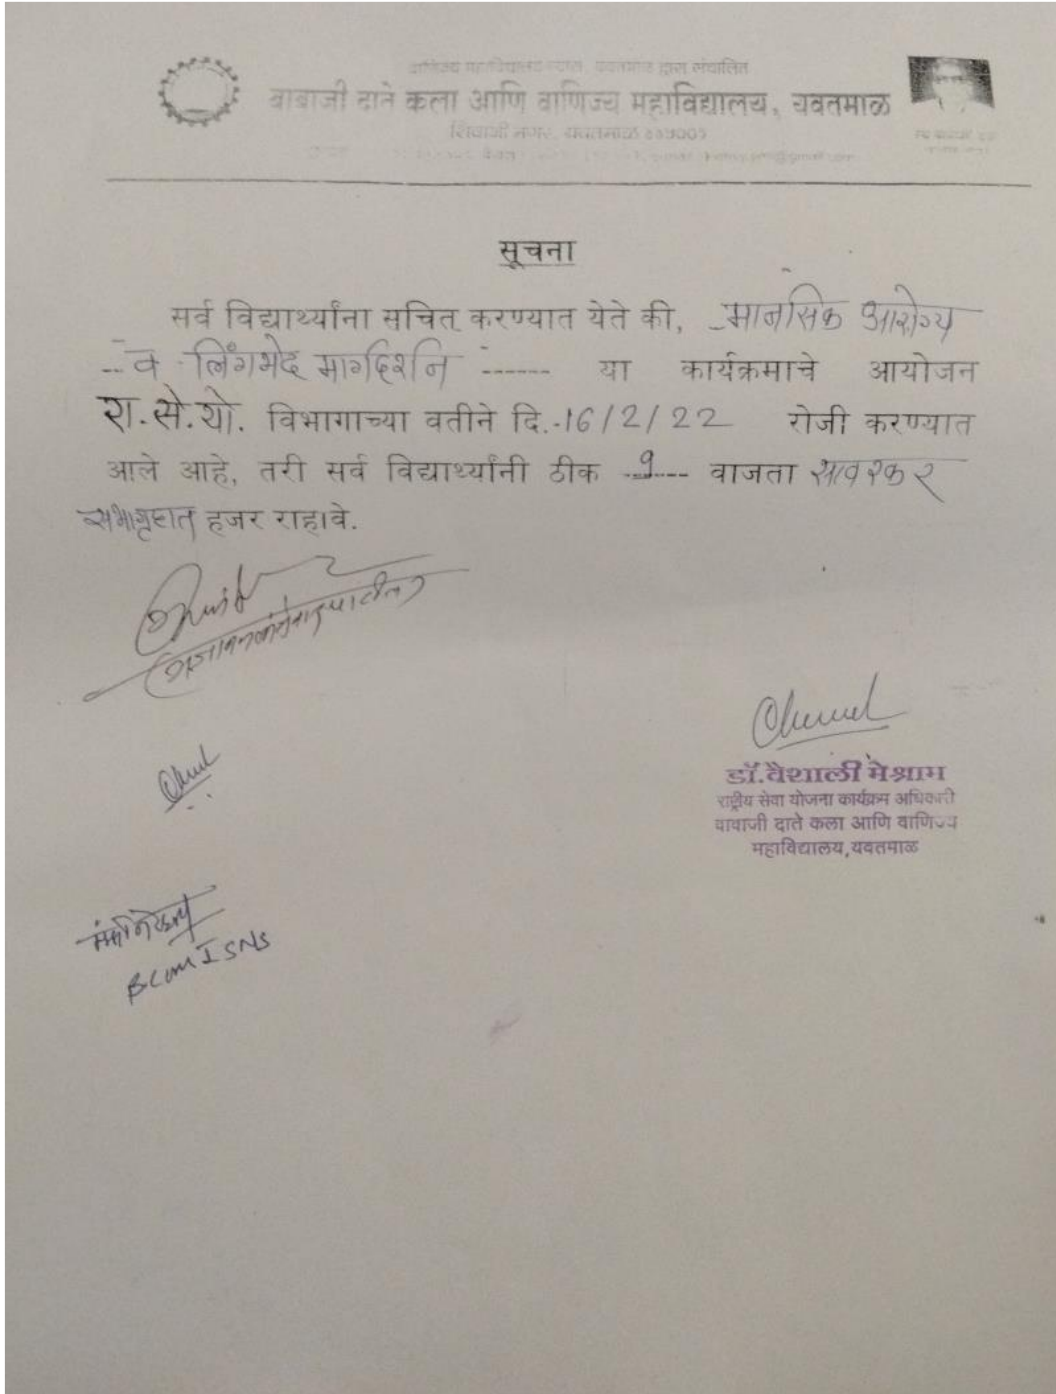 बाबाजी दाते कला आणि वाणिज्य महाविद्यालय, यवतमाळ
शिवाजी नगर, यवतमाळ
सूचना
सर्व विद्यार्थ्यांना सचित करण्यात येते की, मानसिक आरोग्य
व लिंगभेद मार्गदर्शन ------ या कार्यक्रमाचे आयोजन
रा.से.यो. विभागाच्या वतीने दि.-16/2/22 रोजी करण्यात
आले आहे, तरी सर्व विद्यार्थ्यांनी ठीक वाजता सावरकर
सभागृहात हजर राहावे.
डॉ.वैशाली मेश्राम
राष्ट्रीय सेवा योजना कार्यक्रम अधिकारी
बाबाजी दाते कला आणि वाणिज्य
महाविद्यालय,यवतमाळ
BCom I SNS